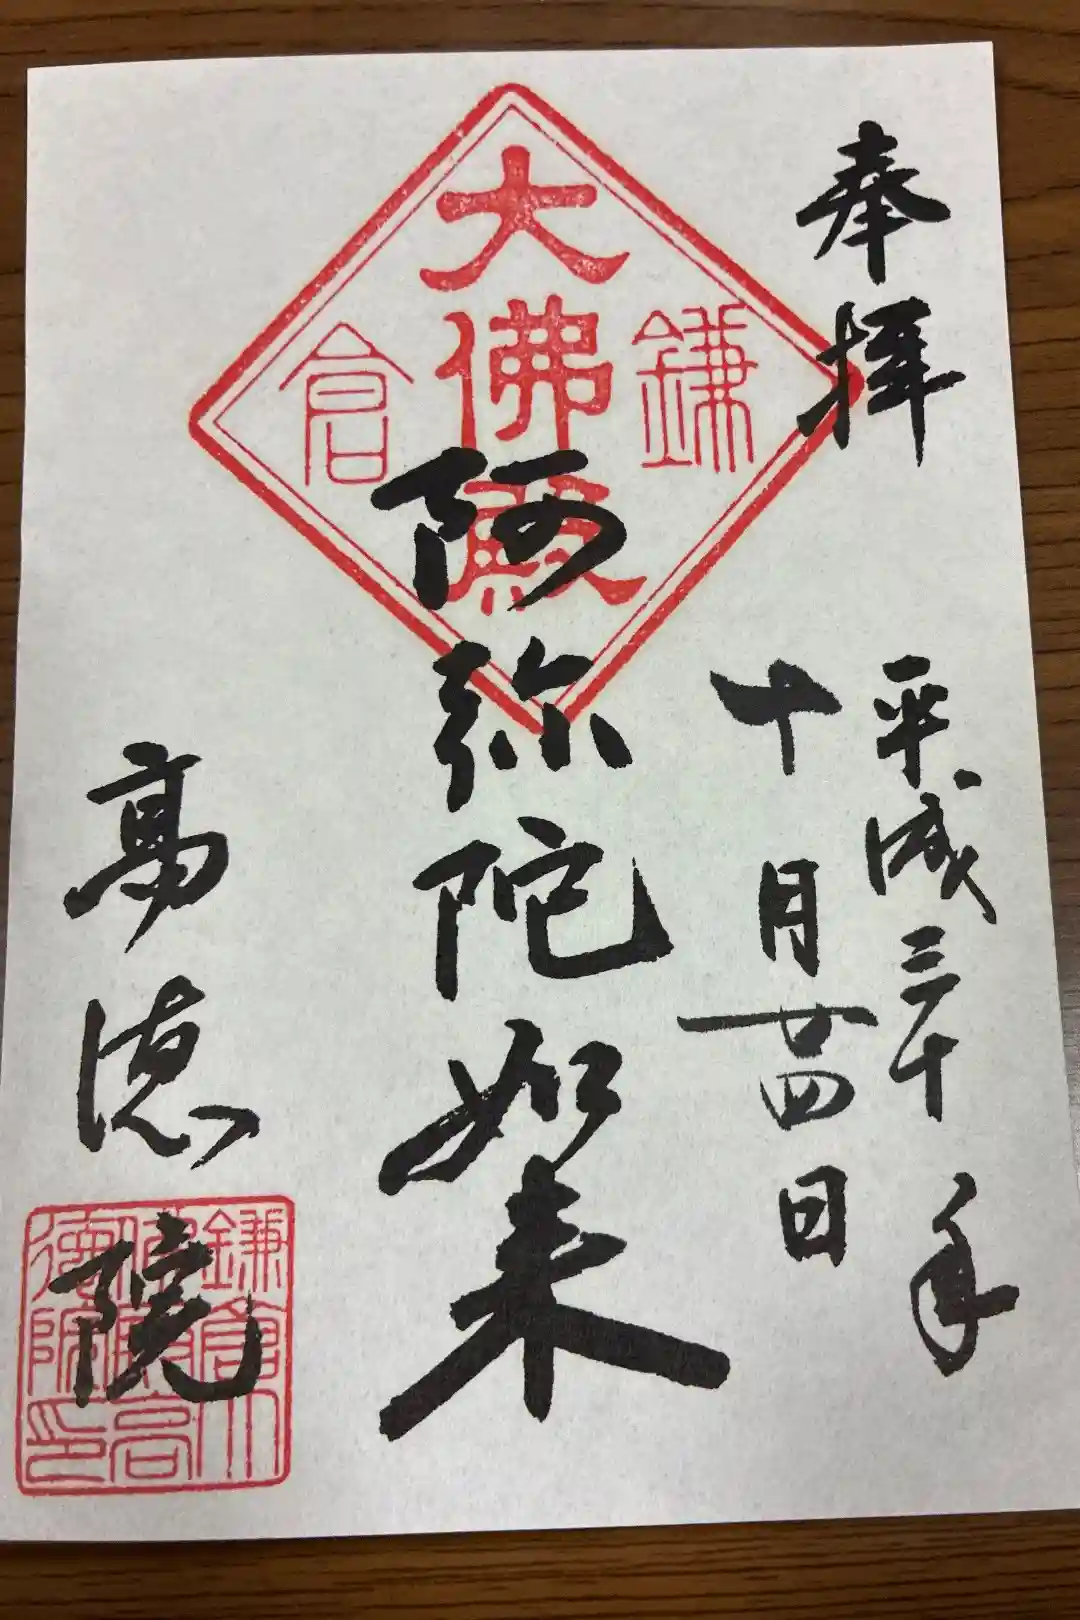 奉拝
平成三十年
十月廿四日
鎌倉
大佛殿
阿弥陀如来
高徳院
鎌倉大佛殿高徳院印